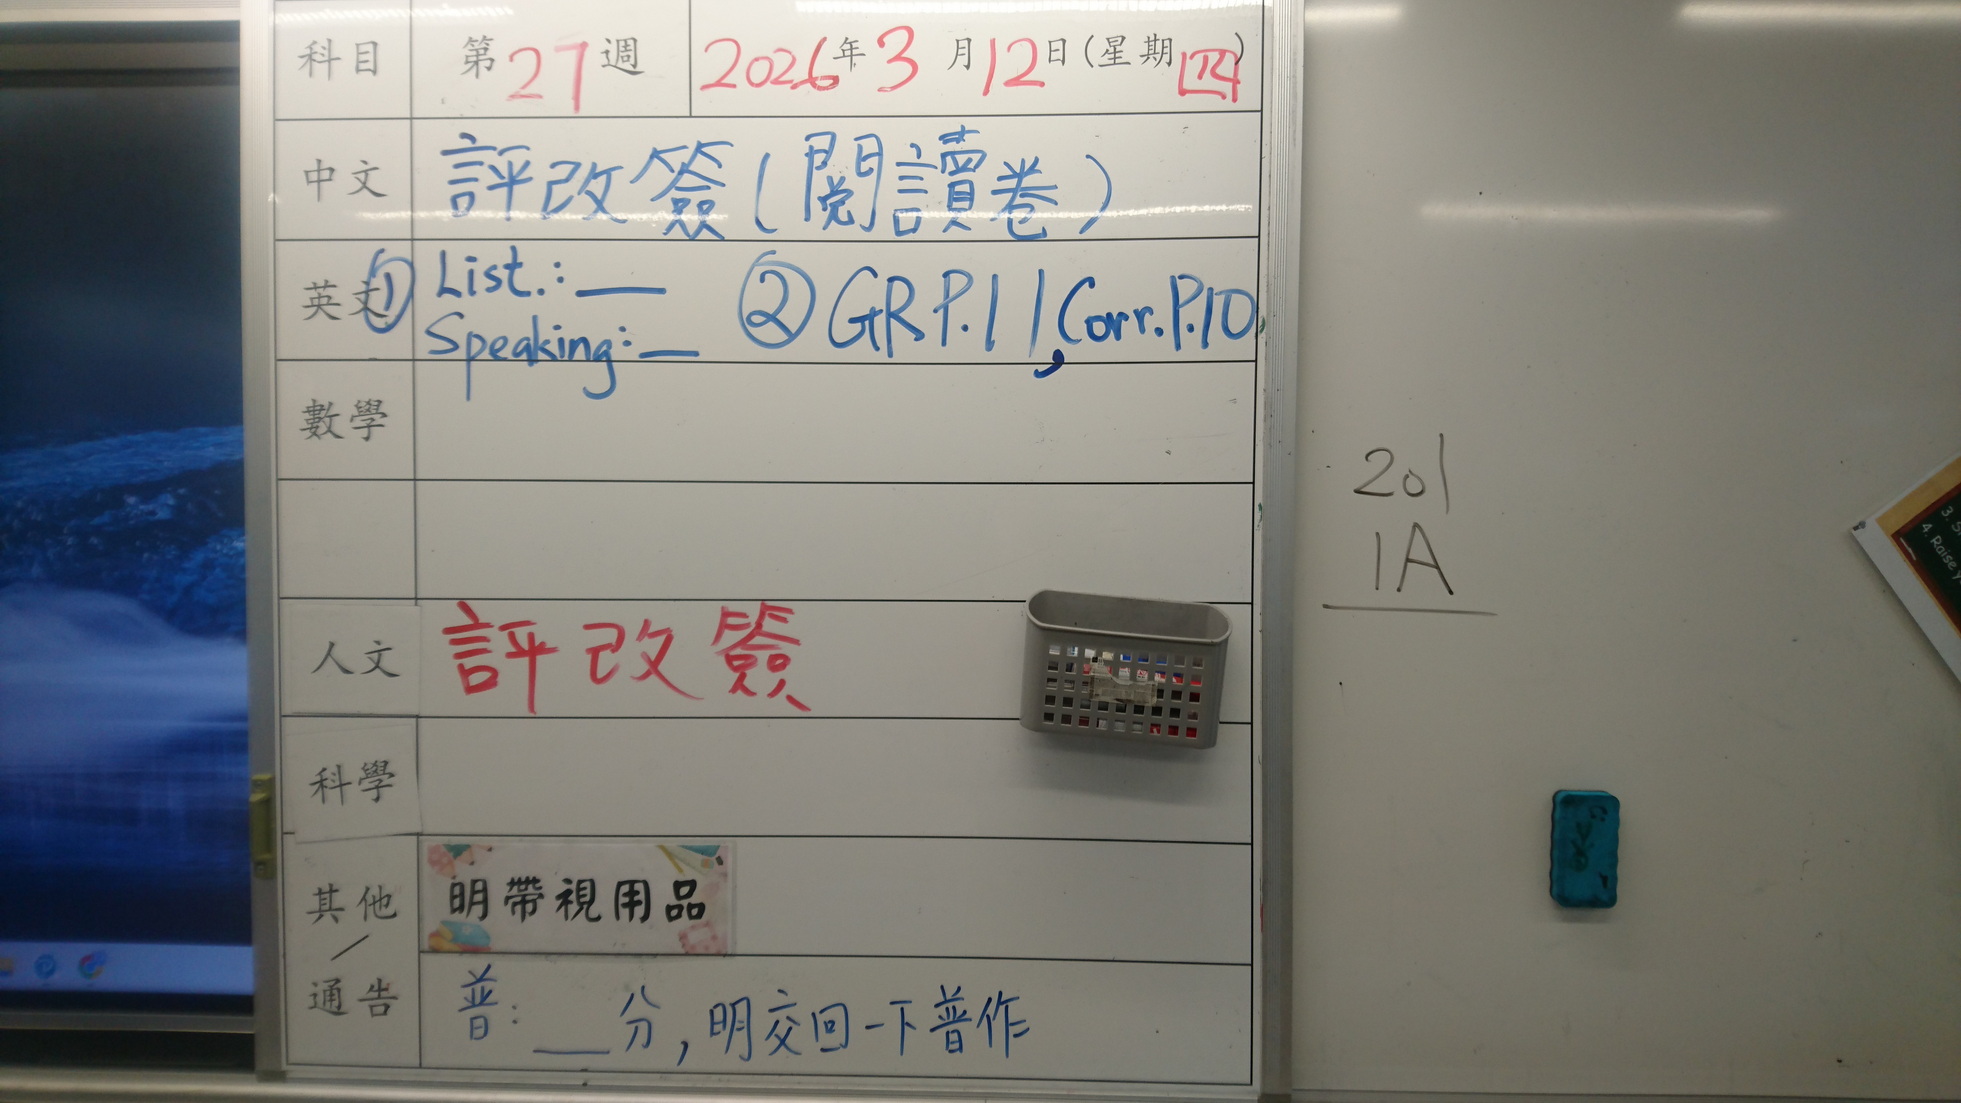 科目 第27週 2026年3月12日(星期四)
中文 評改簽(閱讀卷)
英文 ① List.: __ ② GR P.11, Corr. P.10
Speaking: __
數學
人文 評改簽
科學
其他/通告 明帶視用品
普: __分, 明交回一下普作
201
1A
4. Raise